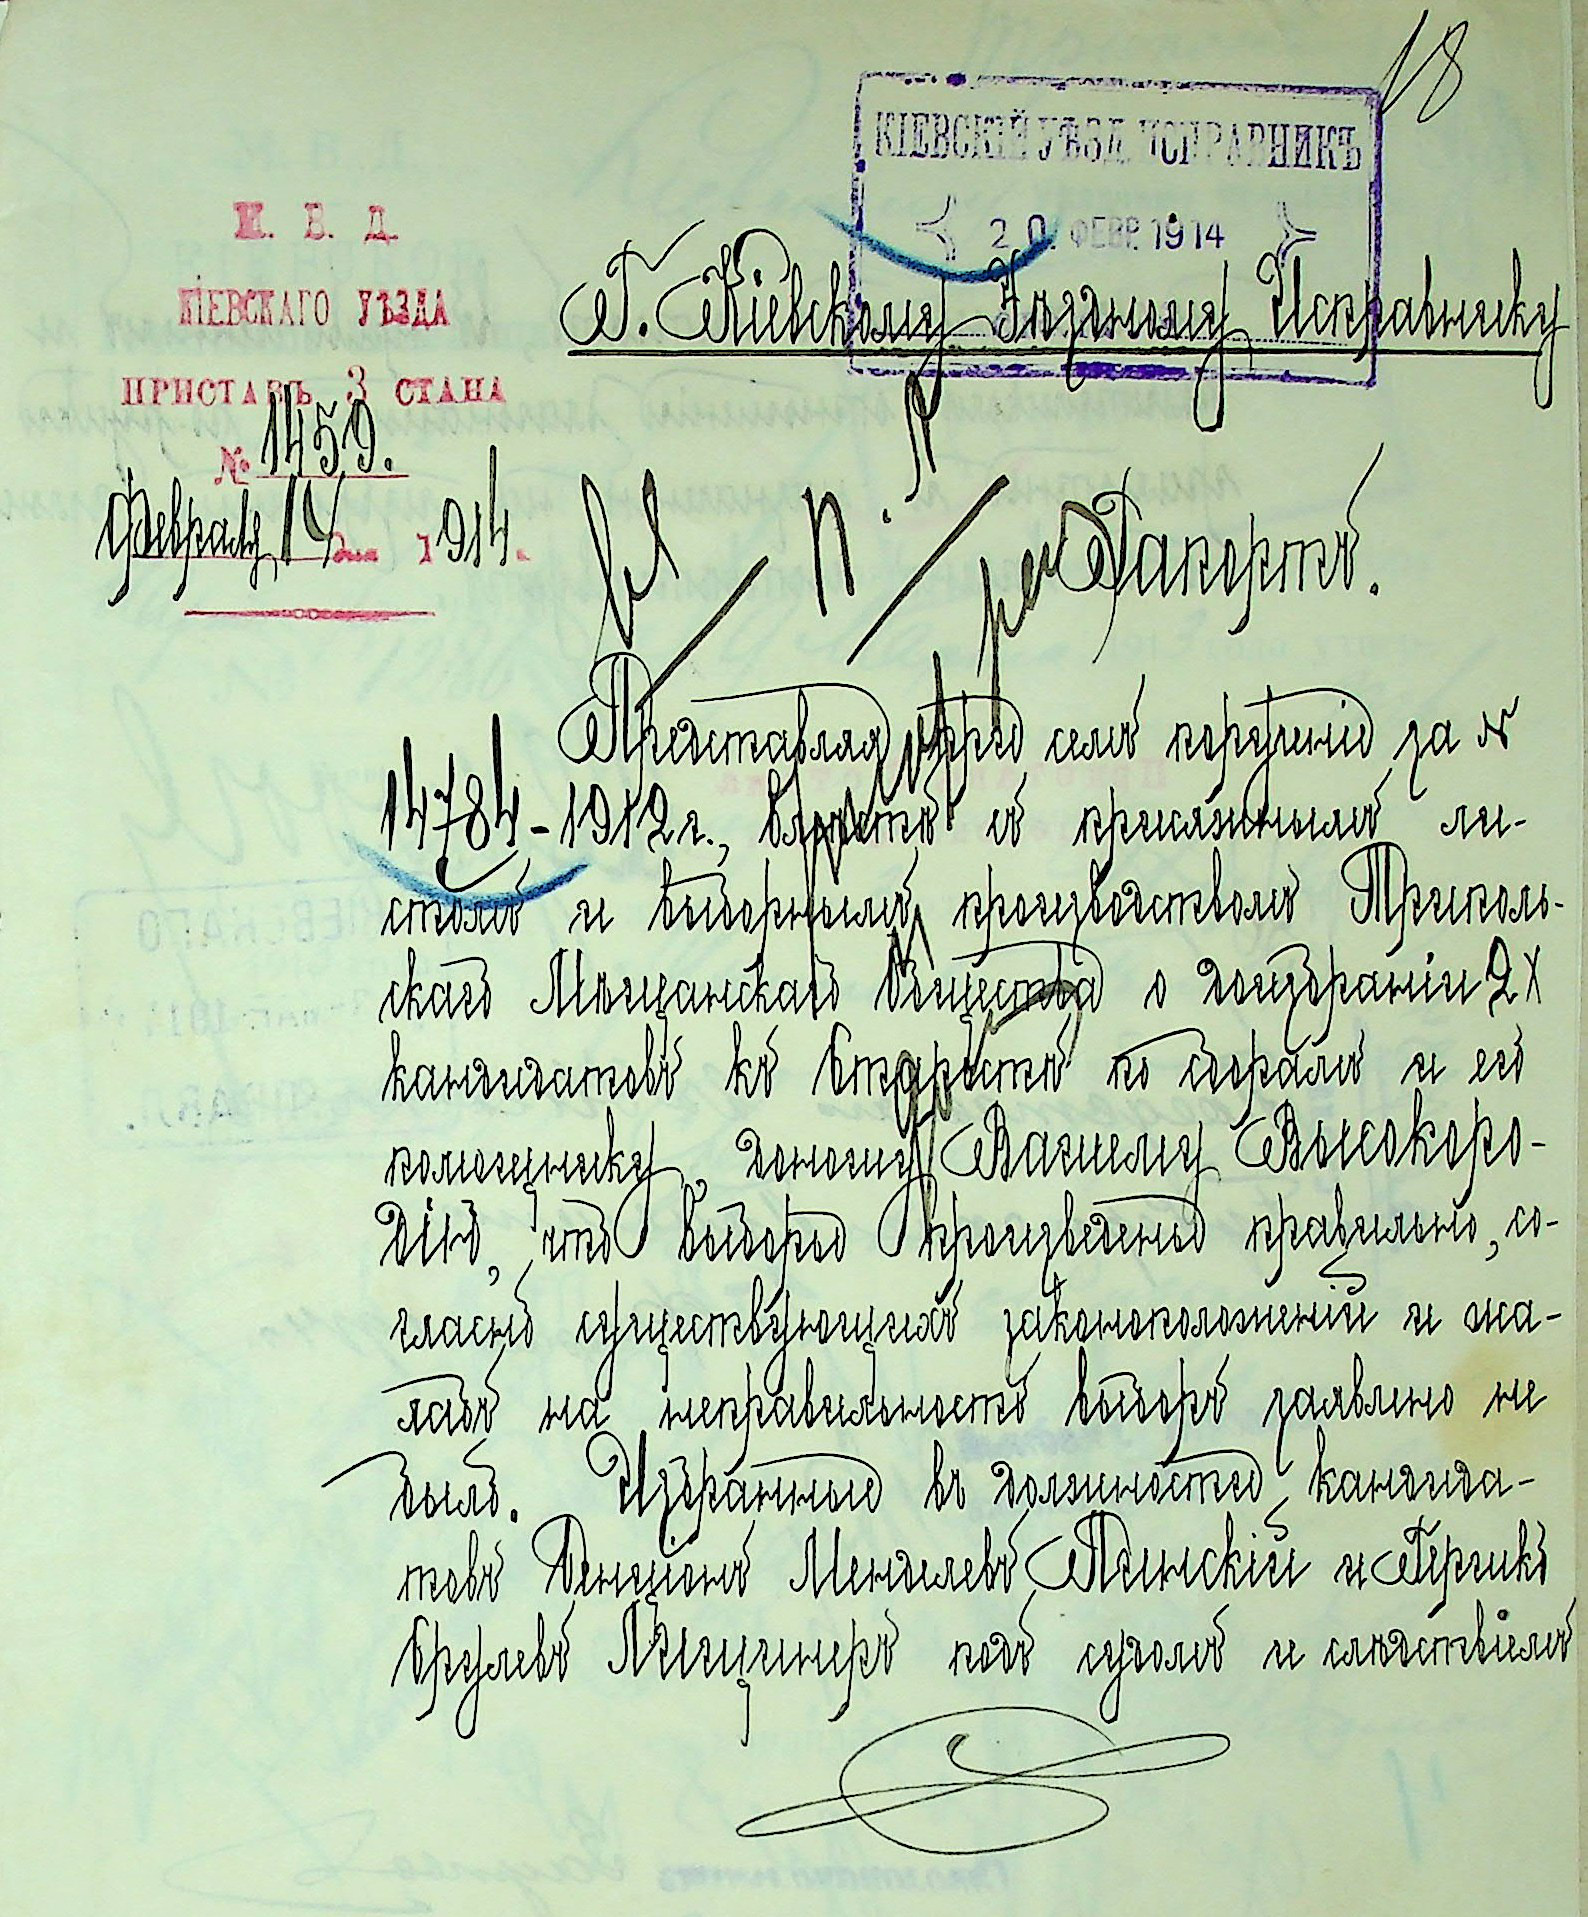 18
КІЕВСКІЙ УѢЗД. ИСПРАВНИКЪ
20. ФЕВР. 1914
М. В. Д.
КІЕВСКАГО УѢЗДА
ПРИСТАВЪ 3 СТАНА
№ 1459.
Февраля 14 дня 1914 г.
Г. Кіевскому Уѣздному Исправнику
Рапортъ.
Представляя при семъ порученіе за №
14784-1912 г., вмѣстѣ съ присяжнымъ ли-
стомъ и выборнымъ производствомъ Триполь-
скаго Мѣщанскаго Общества о доизбраніи 2х
кандидатовъ къ Старостѣ по сборамъ и его
помощнику, доношу Вашему Высокоро-
дію, что выборы произведены правильно, со-
гласно существующихъ законоположеній и жа-
лобъ на неправильность выборъ заявлено не
было. Избранные въ должность кандида-
товъ Бенціонъ Менделевъ Пинскій и Гершко
Срулевъ Лищинеръ подъ судомъ и слѣдствіемъ